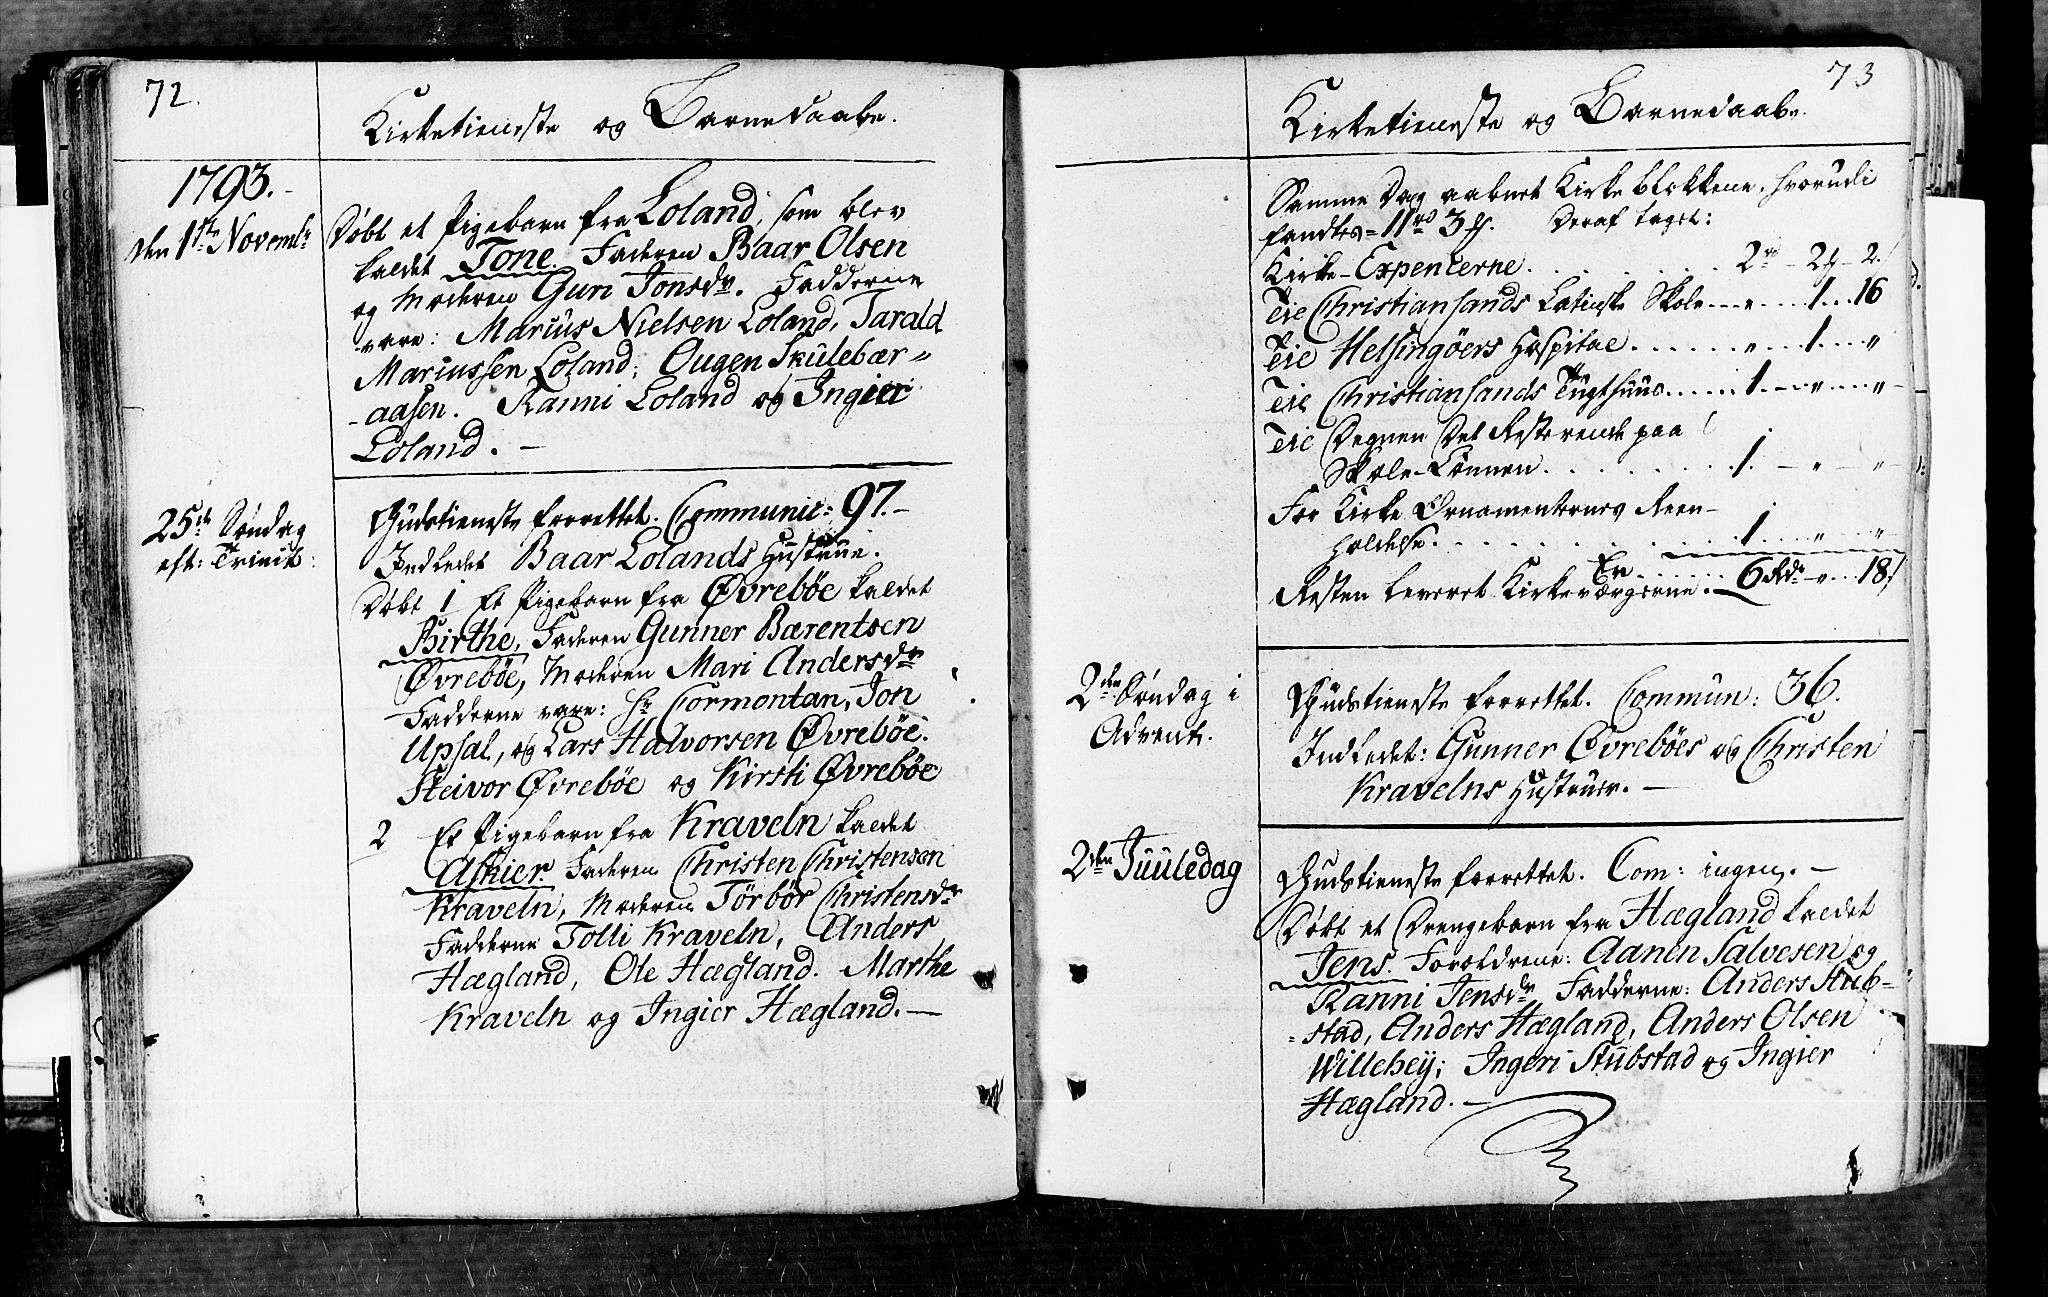 72.
Kirketieneste og Barnedaabe.
1793.
den 1ste Novembr
Døbt et Pigebarn fra Loland, som blev
kaldet Tone. Faderen Baar Olsen
og Moderen Guri Jonsdr. Fadderne
vare: Marius Nielsen Loland, Tarald
Mariussen Loland; Ougen Skulebær-
-aasen. Ranni Loland og Ingier
Loland. -
25de Søndag
eft: Trinit:
Gudstieneste forrettet. Communic: 97. -
Indledet Baar Lolands Hustrue.
Døbt 1 Et Pigebarn fra Øvrebøe kaldet
Birthe, Faderen Gunner Bærentsen
Øvrebøe, Moderen Mari Andersdr
Fadderne vare: Hr Cormontan, Jon
Upsal, og Lars Halvorsen Øvrebøe.
Steivor Øvrebøe og Kirsti Øvrebøe
2 Et Pigebarn fra Kraveln kaldet
Askier. Faderen Christen Christensen
Kraveln, Moderen Torbør Christensdr
Fadderne Tolli Kraveln, Anders
Hægland, Ole Hægland. Marthe
Kraveln og Ingier Hægland. -
73
Kirketieneste og Barnedaabe.
Samme Dag aabnet Kirkeblokkene, hvorudi
fandtes = 11 rd 3 ȝ. Deraf taget:
Kirke-Expencerne . . . . . 2 rd - 2 ȝ - 2.
Til Christiansands Latinske Skole - - " - - 1 . . 16
Til Helsingøers Hospital . . . . . " . . 1 . . . "
Til Christiansands Tugthuus . . . . 1 - - " . . . "
Til Degnen Det Resterende paa
Skole-Lønnen . . . . . 1 - " - "
For Kirke Ornamenternes Reen-
holdelse . . . . . 1 . . " . . "
Er . . . . . 6 Rdr - " . . 18
Resten leveret Kirkeværgerne.
2den Søndag i
Advent.
Gudstieneste forrettet. Commun: 36.
Indledet: Gunner Øvrebøes og Christen
Kravelns Hustruer. -
2den Juuledag
Gudstieneste forrettet. Com: ingen. -
Døbt et Drengebarn fra Hægland kaldet
Jens. Forældrene: Aanen Salvesen og
Ranni Jensdr Fadderne: Anders Stub-
-stad, Anders Hægland, Anders Olsen
Willehey; Ingeri Stubstad og Ingier
Hægland. -